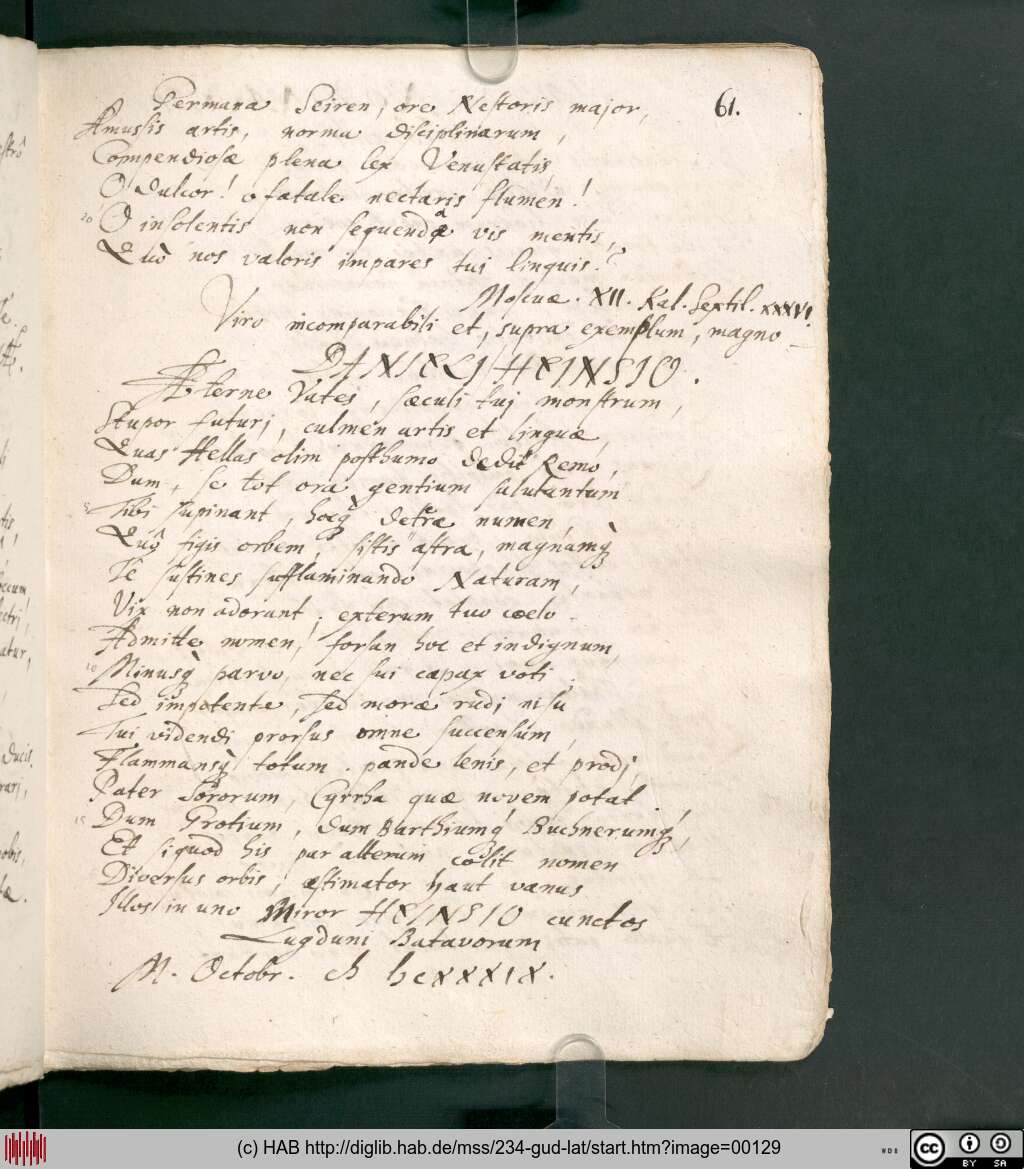 Germana Seiren, ore Nestoris major, 61.
Amussis artis, norma disciplinarum,
Compendiosæ plena lex Venustatis,
O dulcor! o fatale nectaris flumen!
20 O insolentis non sequendæ vis mentis,
Quò nos valoris impares tui linquis?
Moscuæ. XII. Kal. Sextil. XXXVI.
Viro incomparabili et, supra exemplum, magno
DANIELI HEINSIO.
Æterne Vates, sæculi tuj monstrum,
Stupor futurj, culmen artis et linguæ,
Quas Hellas olim posthumo dedit Remo,
Dum, se tot ora gentium salutantum
5 Tibi supinant, hocq̀ dextræ numen,
Quô figis orbem, sistis astra, magnamq̀
Te sustines sufflaminando Naturam,
Vix non adorant. exterum tuo cœlo
Admitte nomen, forsan hoc et indignum,
10 Minusq̀ parvo, nec sui capax voti,
Sed impotente, sed moræ rudi nisu
Tui videndi prorsus omne succensum,
Flammansq̀ totum. pande lenis, et prodj,
Pater Sororum, Cyrrha quæ novem potat.
15 Dum Grotium, dum Barthiumq́, Buchnerumq́,
Et siquod his par alterum colit nomen
Diversus orbis, æstimator haut vanus
Illos in uno Miror HEINSIO cunctos
Lugduni Batavorum
M. Octobr. cIɔ IɔcXXXIX.
(c) HAB http://diglib.hab.de/mss/234-gud-lat/start.htm?image=00129
WDB
cc BY SA